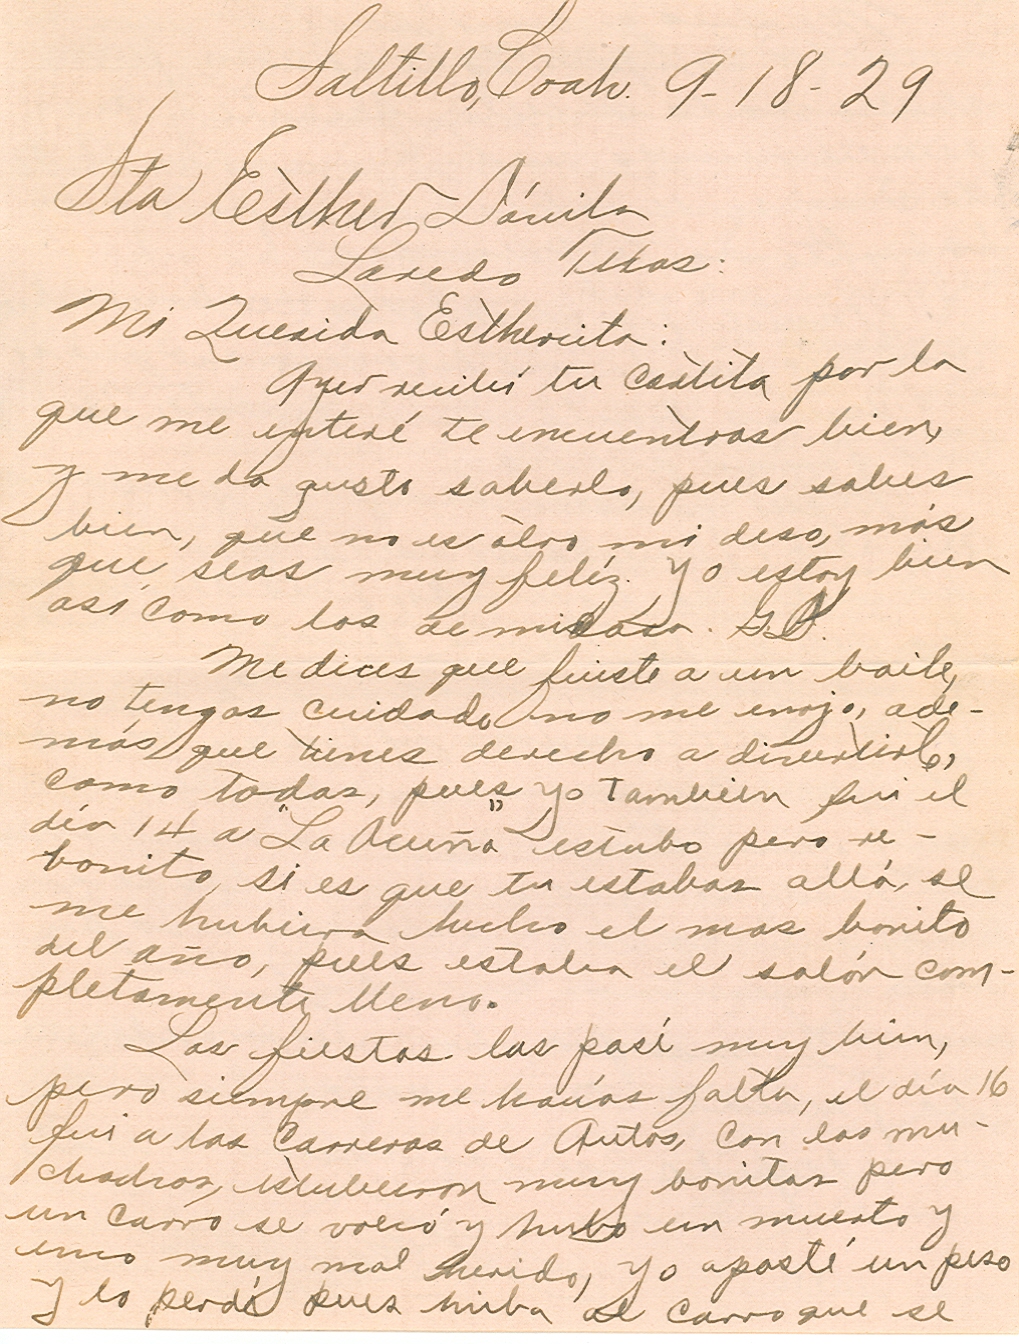 Saltillo, Coah. 9-18-29
Sta Esther Dávila
Laredo Texas:
Mi Querida Esthercita:
Ayer recibí tu cartita por la
que me enteré te encuentras bien,
y me da gusto saberlo, pues sabes
bien, que no es otro mi deso, más
que seas muy feliz. Yo estoy bien
así como los de mi casa. G.D.
Me dices que fuiste a un baile,
no tengas cuidado, no me enojo, ade-
más que tienes derecho a divertirte,
como todas, pues yo También fui el
día 14 a "La Acuña" estubo pero re-
bonito, si es que tu estabas allá, se
me hubiera hecho el mas bonito
del año, pues estaba el salón com-
pletamente lleno.
Las fiestas las pasé muy bien,
pero siempre me hacías falta, el día 16
fui a las Carreras de Autos, con los mu-
chachos, estubieron muy bonitas pero
un carro se volcó y hubo un muerto y
uno muy mal herido, yo aposté un peso
y lo perdí pues hiba al carro que se